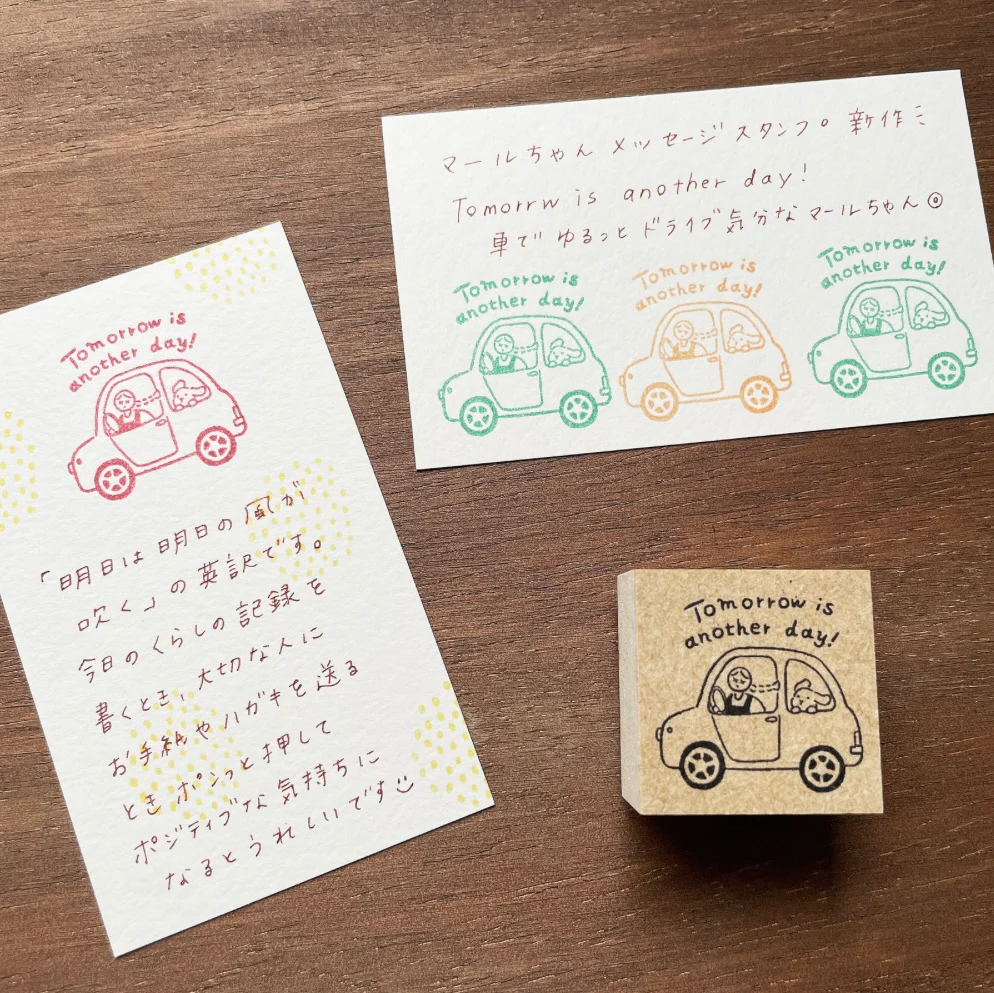 Tomorrow is
another day!
「明日は明日の風が
吹く」の英訳です。
今日のくらしの記録を
書くとき、大切な人に
お手紙やハガキを送る
ときポンっと押して
ポジティブな気持ちに
なるとうれしいです
マールちゃん メッセージスタンプ。新作ミ
Tomorrw is another day!
車でゆるっとドライブ気分なマールちゃん◎
Tomorrow is
another day!
Tomorrow is
another day!
Tomorrow is
another day!
Tomorrow is
another day!